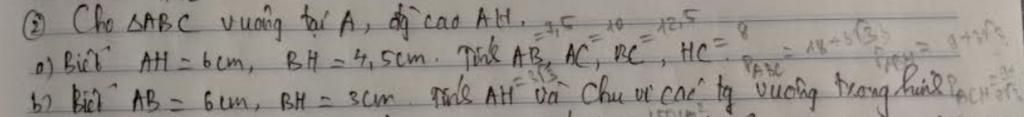 ② Cho △ABC vuông tại A, đg cao AH.
=7,5 =10 =12,5
a) Biết AH = 6cm, BH = 4,5cm. Tính AB, AC, BC, HC = 8
b) Biết AB = 6cm, BH = 3cm. Tính AH =3√3 và Chu vi các tg vuông trong hình